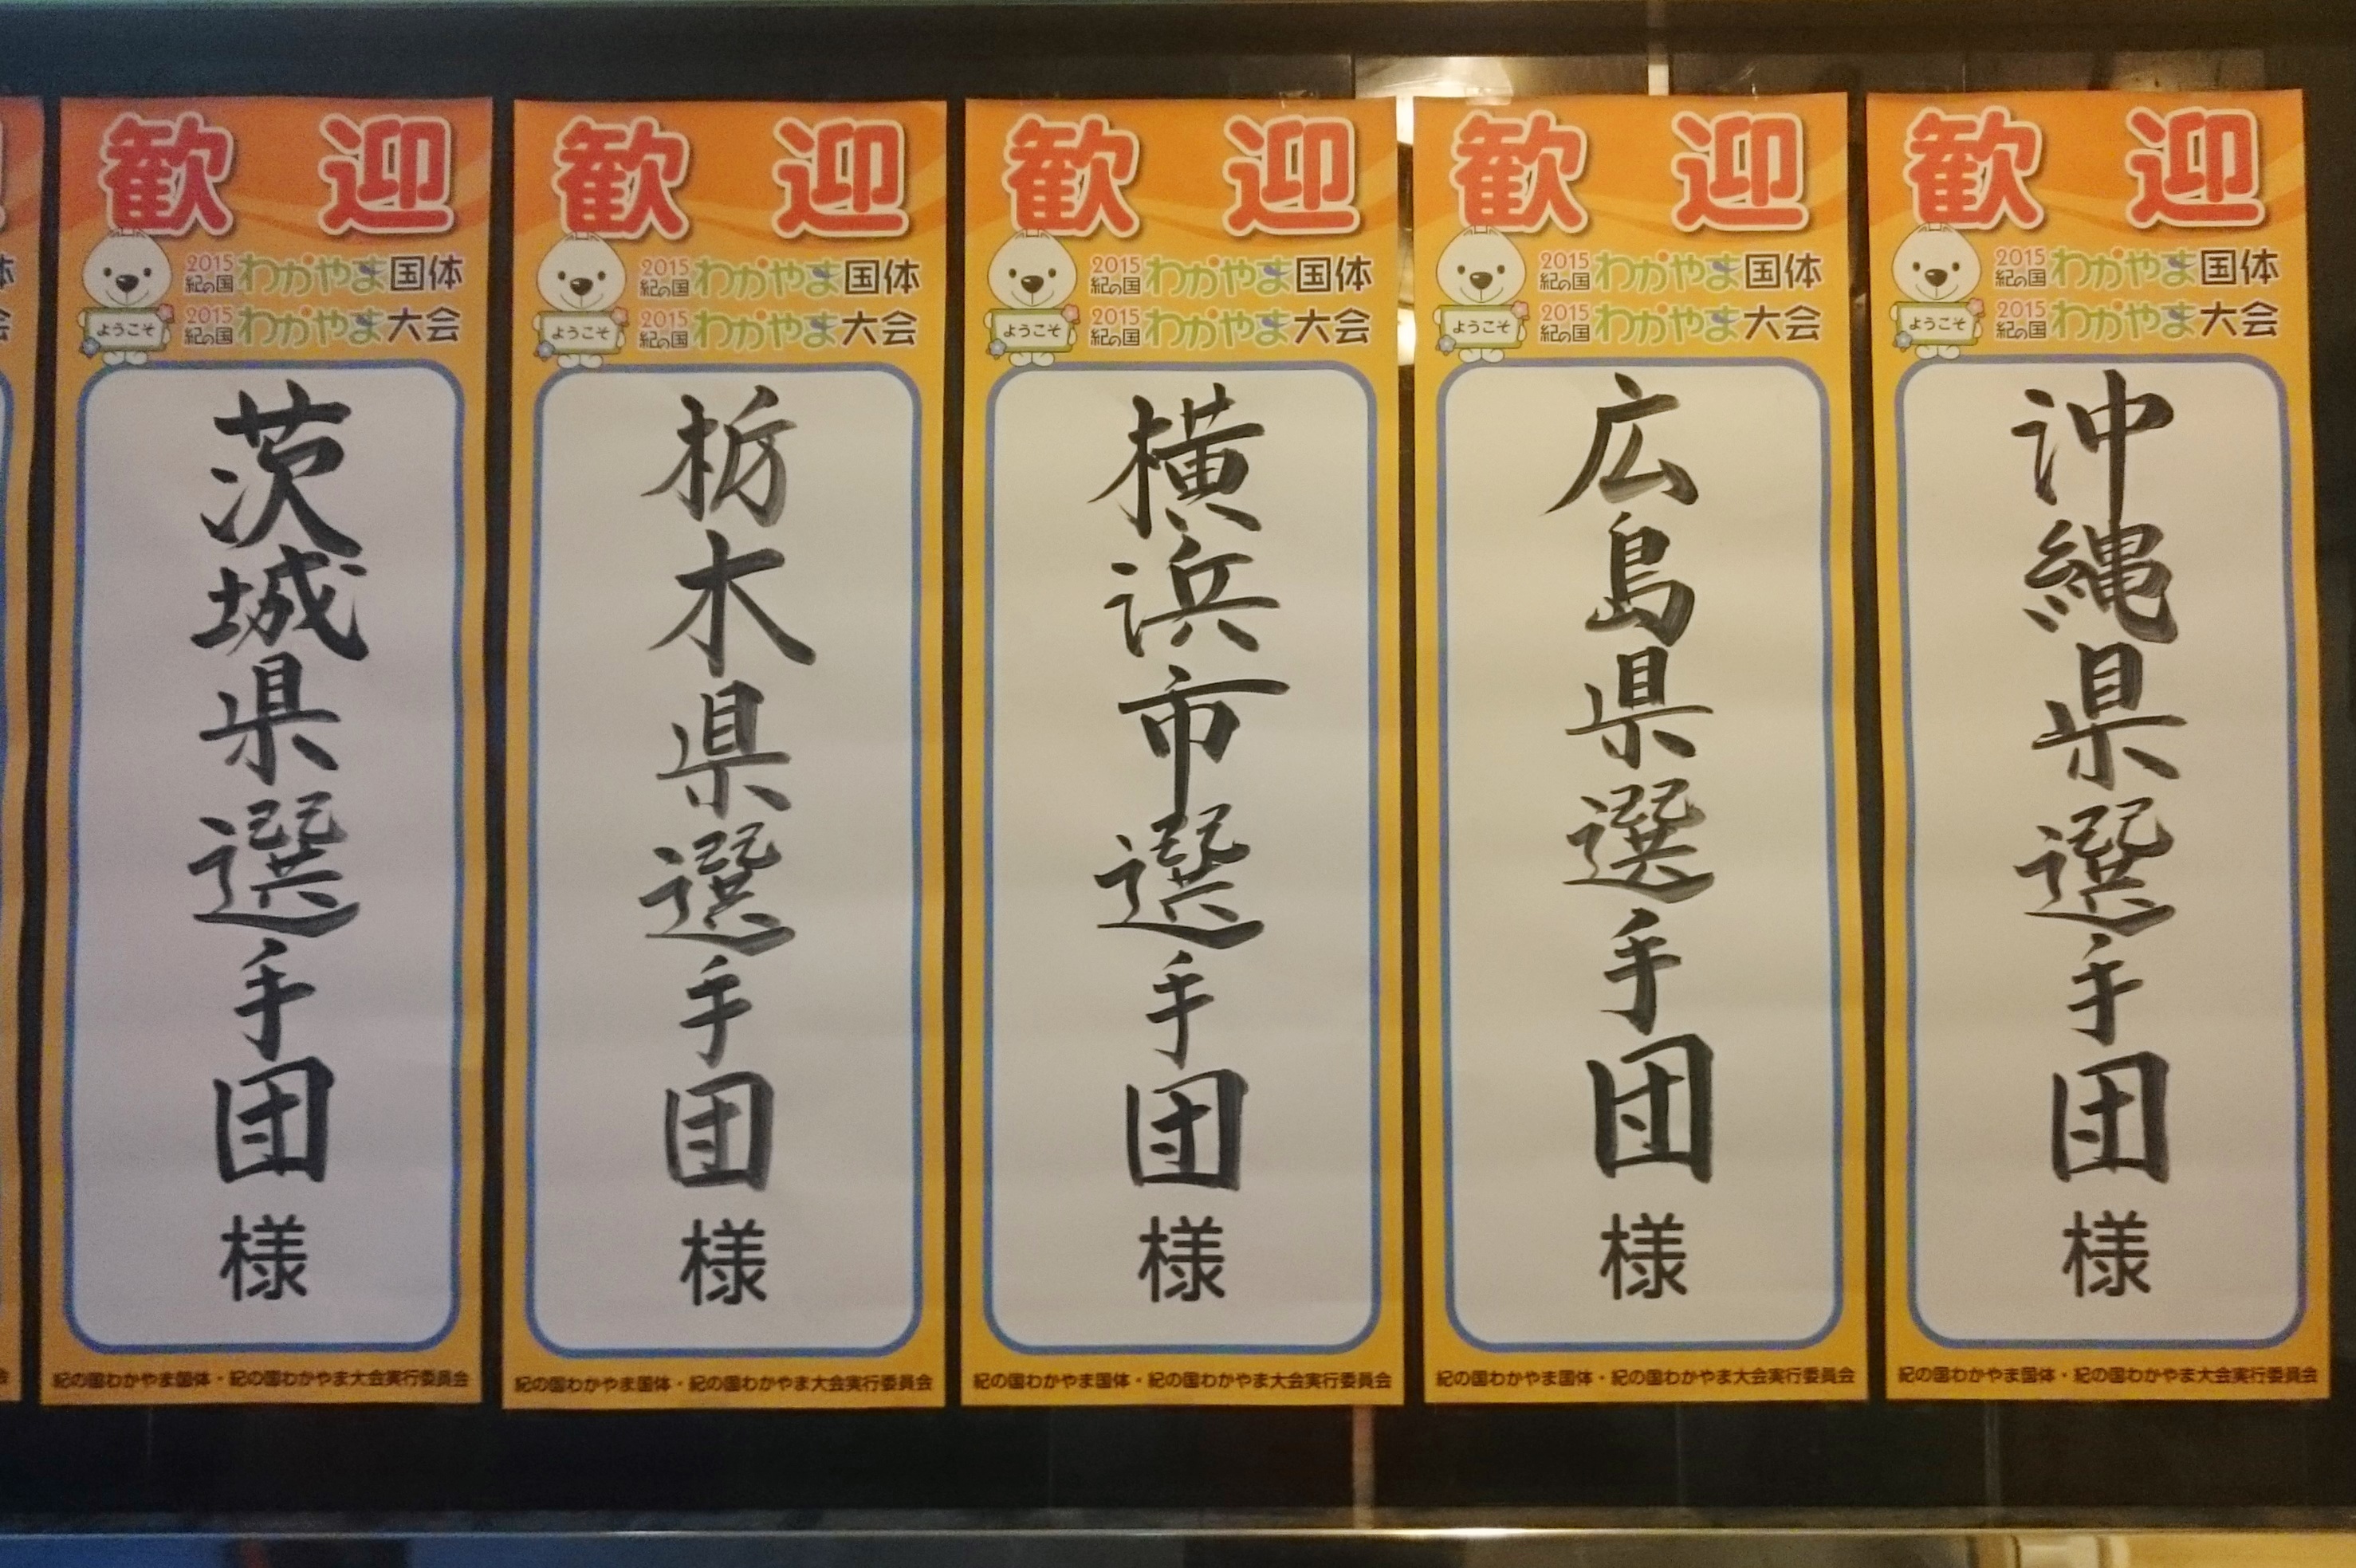 歓迎
2015
紀の国
わかやま国体
2015
紀の国
わかやま大会
ようこそ
茨城県選手団様
紀の国わかやま国体・紀の国わかやま大会実行委員会
歓迎
2015
紀の国
わかやま国体
2015
紀の国
わかやま大会
ようこそ
栃木県選手団様
紀の国わかやま国体・紀の国わかやま大会実行委員会
歓迎
2015
紀の国
わかやま国体
2015
紀の国
わかやま大会
ようこそ
横浜市選手団様
紀の国わかやま国体・紀の国わかやま大会実行委員会
歓迎
2015
紀の国
わかやま国体
2015
紀の国
わかやま大会
ようこそ
広島県選手団様
紀の国わかやま国体・紀の国わかやま大会実行委員会
歓迎
2015
紀の国
わかやま国体
2015
紀の国
わかやま大会
ようこそ
沖縄県選手団様
紀の国わかやま国体・紀の国わかやま大会実行委員会